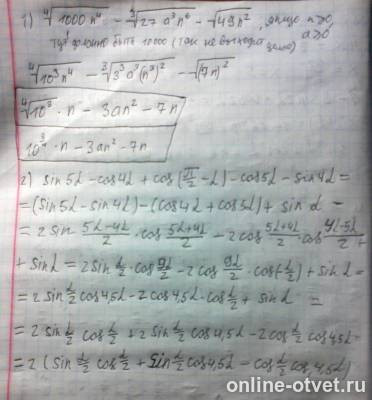 1) ∜1000n⁴ - ∛27a³n⁶ - √49n², якщо n≥0, a≥0
тут должно быть 10000 (так не выходит
∜10³n⁴ - ∛3³a³(n²)³ - √(7n)²
∜10³ · n - 3an² - 7n
10^(3/4) · n - 3an² - 7n
2) sin5α - cos4α + cos(π/2 - α) - cos5α - sin4α =
= (sin5α - sin4α) - (cos4α + cos5α) + sin α =
= 2 sin (5α-4α)/2 · cos (5α+4α)/2 - 2 cos (5α+4α)/2 · cos (4α-5α)/2 +
+ sin α = 2 sin α/2 · cos 9α/2 - 2 cos 9α/2 · cos(-α/2) + sin α =
= 2 sin α/2 cos4,5α - 2 cos4,5α · cos α/2 + sin α =
= 2 sin α/2 cos α/2 + 2 sin α/2 cos4,5α - 2 cos α/2 cos4,5α =
= 2 (sin α/2 cos α/2 + sin α/2 cos4,5α - cos α/2 cos4,5α)
online-otvet.ru